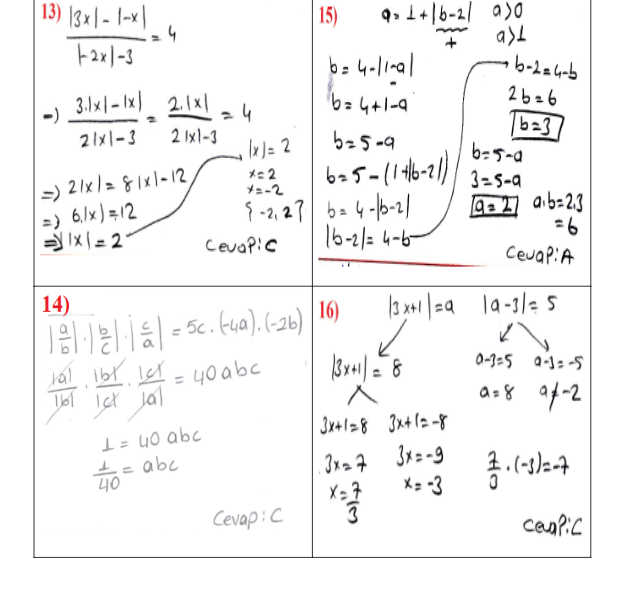 13) |3x| - |-x| / |-2x| - 3 = 4
=) 3.|x| - |x| / 2|x| - 3 = 2.|x| / 2|x| - 3 = 4
=) 2|x| = 8|x| - 12
=) 6.|x| = 12
=) |x| = 2
|x| = 2
x = 2
x = -2
{-2, 2}
Cevap: C
14)
|a/b| . |b/c| . |c/a| = 5c . (-4a) . (-2b)
|a|/|b| . |b|/|c| . |c|/|a| = 40abc
1 = 40 abc
1/40 = abc
Cevap: C
15) a = 1 + |b-2| a>0
+ a>1
b = 4 - |1-a|
-
b = 4 + 1 - a
b = 5 - a
b = 5 - (1 + |b-2|)
b = 4 - |b-2|
|b-2| = 4 - b
b - 2 = 4 - b
2b = 6
b = 3
b = 5 - a
3 = 5 - a
a = 2 a.b = 2.3
= 6
Cevap: A
16) |3x+1| = a |a-3| = 5
|3x+1| = 8 a-3=5 a-3=-5
a=8 a≠-2
3x+1=8 3x+1=-8
3x=7 3x=-9
x=7/3 x=-3
7/3 . (-3) = -7
Cevap: C